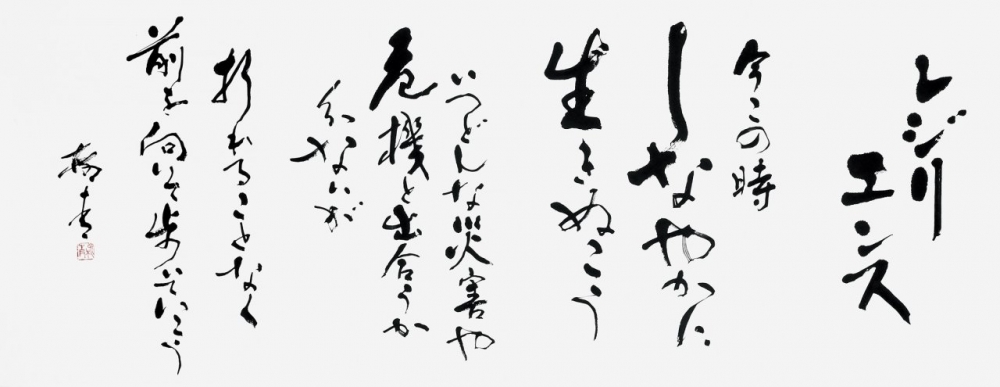 レジリ
エンス
今この時
しなやかに
生きぬこう
いつどんな災害や
危機と出合うか
分からないが
折れることなく
前を向いて歩いていこう